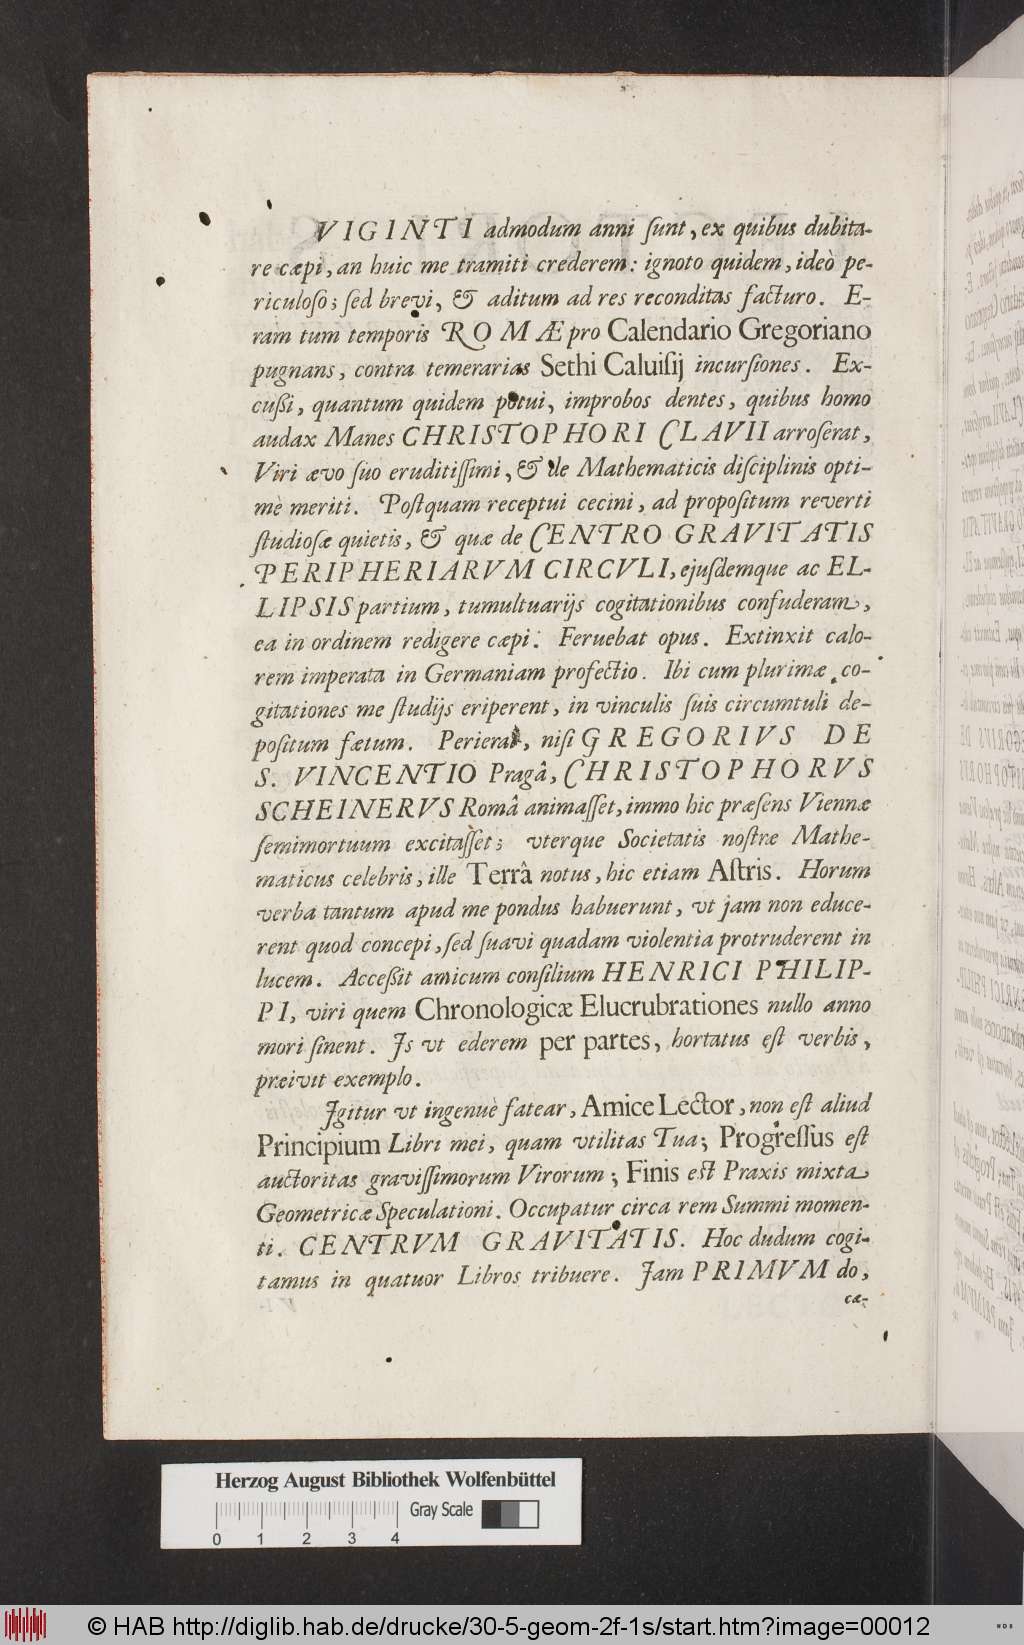 VIGINTI admodum anni ſunt, ex quibus dubita-
re cæpi, an huic me tramiti crederem: ignoto quidem, ideò pe-
riculoſo; ſed brevi, & aditum ad res reconditas facturo. E-
ram tum temporis ROMÆ pro Calendario Gregoriano
pugnans, contra temerarias Sethi Caluiſij incurſiones. Ex-
cußi, quantum quidem potui, improbos dentes, quibus homo
audax Manes CHRISTOPHORI CLAVII arroſerat,
Viri ævo ſuo eruditiſſimi, & de Mathematicis diſciplinis opti-
mè meriti. Poſtquam receptui cecini, ad propoſitum reverti
ſtudioſæ quietis, & quæ de CENTRO GRAVITATIS
PERIPHERIARVM CIRCVLI, ejuſdemque ac EL-
LIPSIS partium, tumultuarijs cogitationibus confuderam,
ea in ordinem redigere cæpi. Feruebat opus. Extinxit calo-
rem imperata in Germaniam profectio. Ibi cum plurimæ co-
gitationes me ſtudijs eriperent, in vinculis ſuis circumtuli de-
poſitum fætum. Perierat, niſi GREGORIVS DE
S. VINCENTIO Pragâ, CHRISTOPHORVS
SCHEINERVS Romà animaſſet, immo hic præſens Viennæ
ſemimortuum excitaſſet; vterque Societatis noſtræ Mathe-
maticus celebris, ille Terrâ notus, hic etiam Aſtris. Horum
verba tantum apud me pondus habuerunt, vt jam non educe-
rent quod concepi, ſed ſuavi quadam violentia protruderent in
lucem. Acceßit amicum conſilium HENRICI PHILIP-
PI, viri quem Chronologicæ Elucrubrationes nullo anno
mori ſinent. Is vt ederem per partes, hortatus eſt verbis,
præivit exemplo.
Igitur vt ingenuè fatear, Amice Lector, non eſt aliud
Principium Libri mei, quam vtilitas Tua; Progreſſus eſt
auctoritas graviſſimorum Virorum; Finis eſt Praxis mixta
Geometricæ Speculationi. Occupatur circa rem Summi momen-
ti. CENTRVM GRAVITATIS. Hoc dudum cogi-
tamus in quatuor Libros tribuere. Jam PRIMVM do,
ca-
Herzog August Bibliothek Wolfenbüttel
Gray Scale
0 1 2 3 4
© HAB http://diglib.hab.de/drucke/30-5-geom-2f-1s/start.htm?image=00012